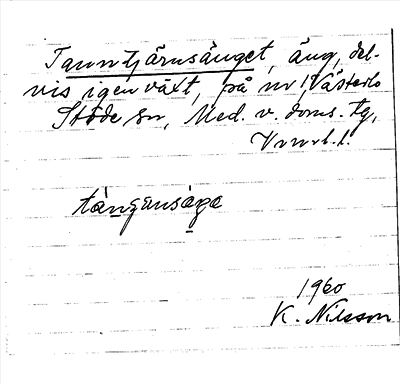 Tanntjärnsänget, äng, del-
vis igenväxt, på nr 1 Västerlo
Stöde sn, Med. v. doms. tg,
Vnorl. l.
tàngansäge
1960
K. Nilsson